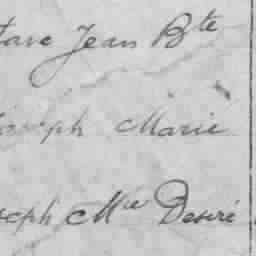 tave Jean Bte
Joseph Marie
seph Mie Desiré